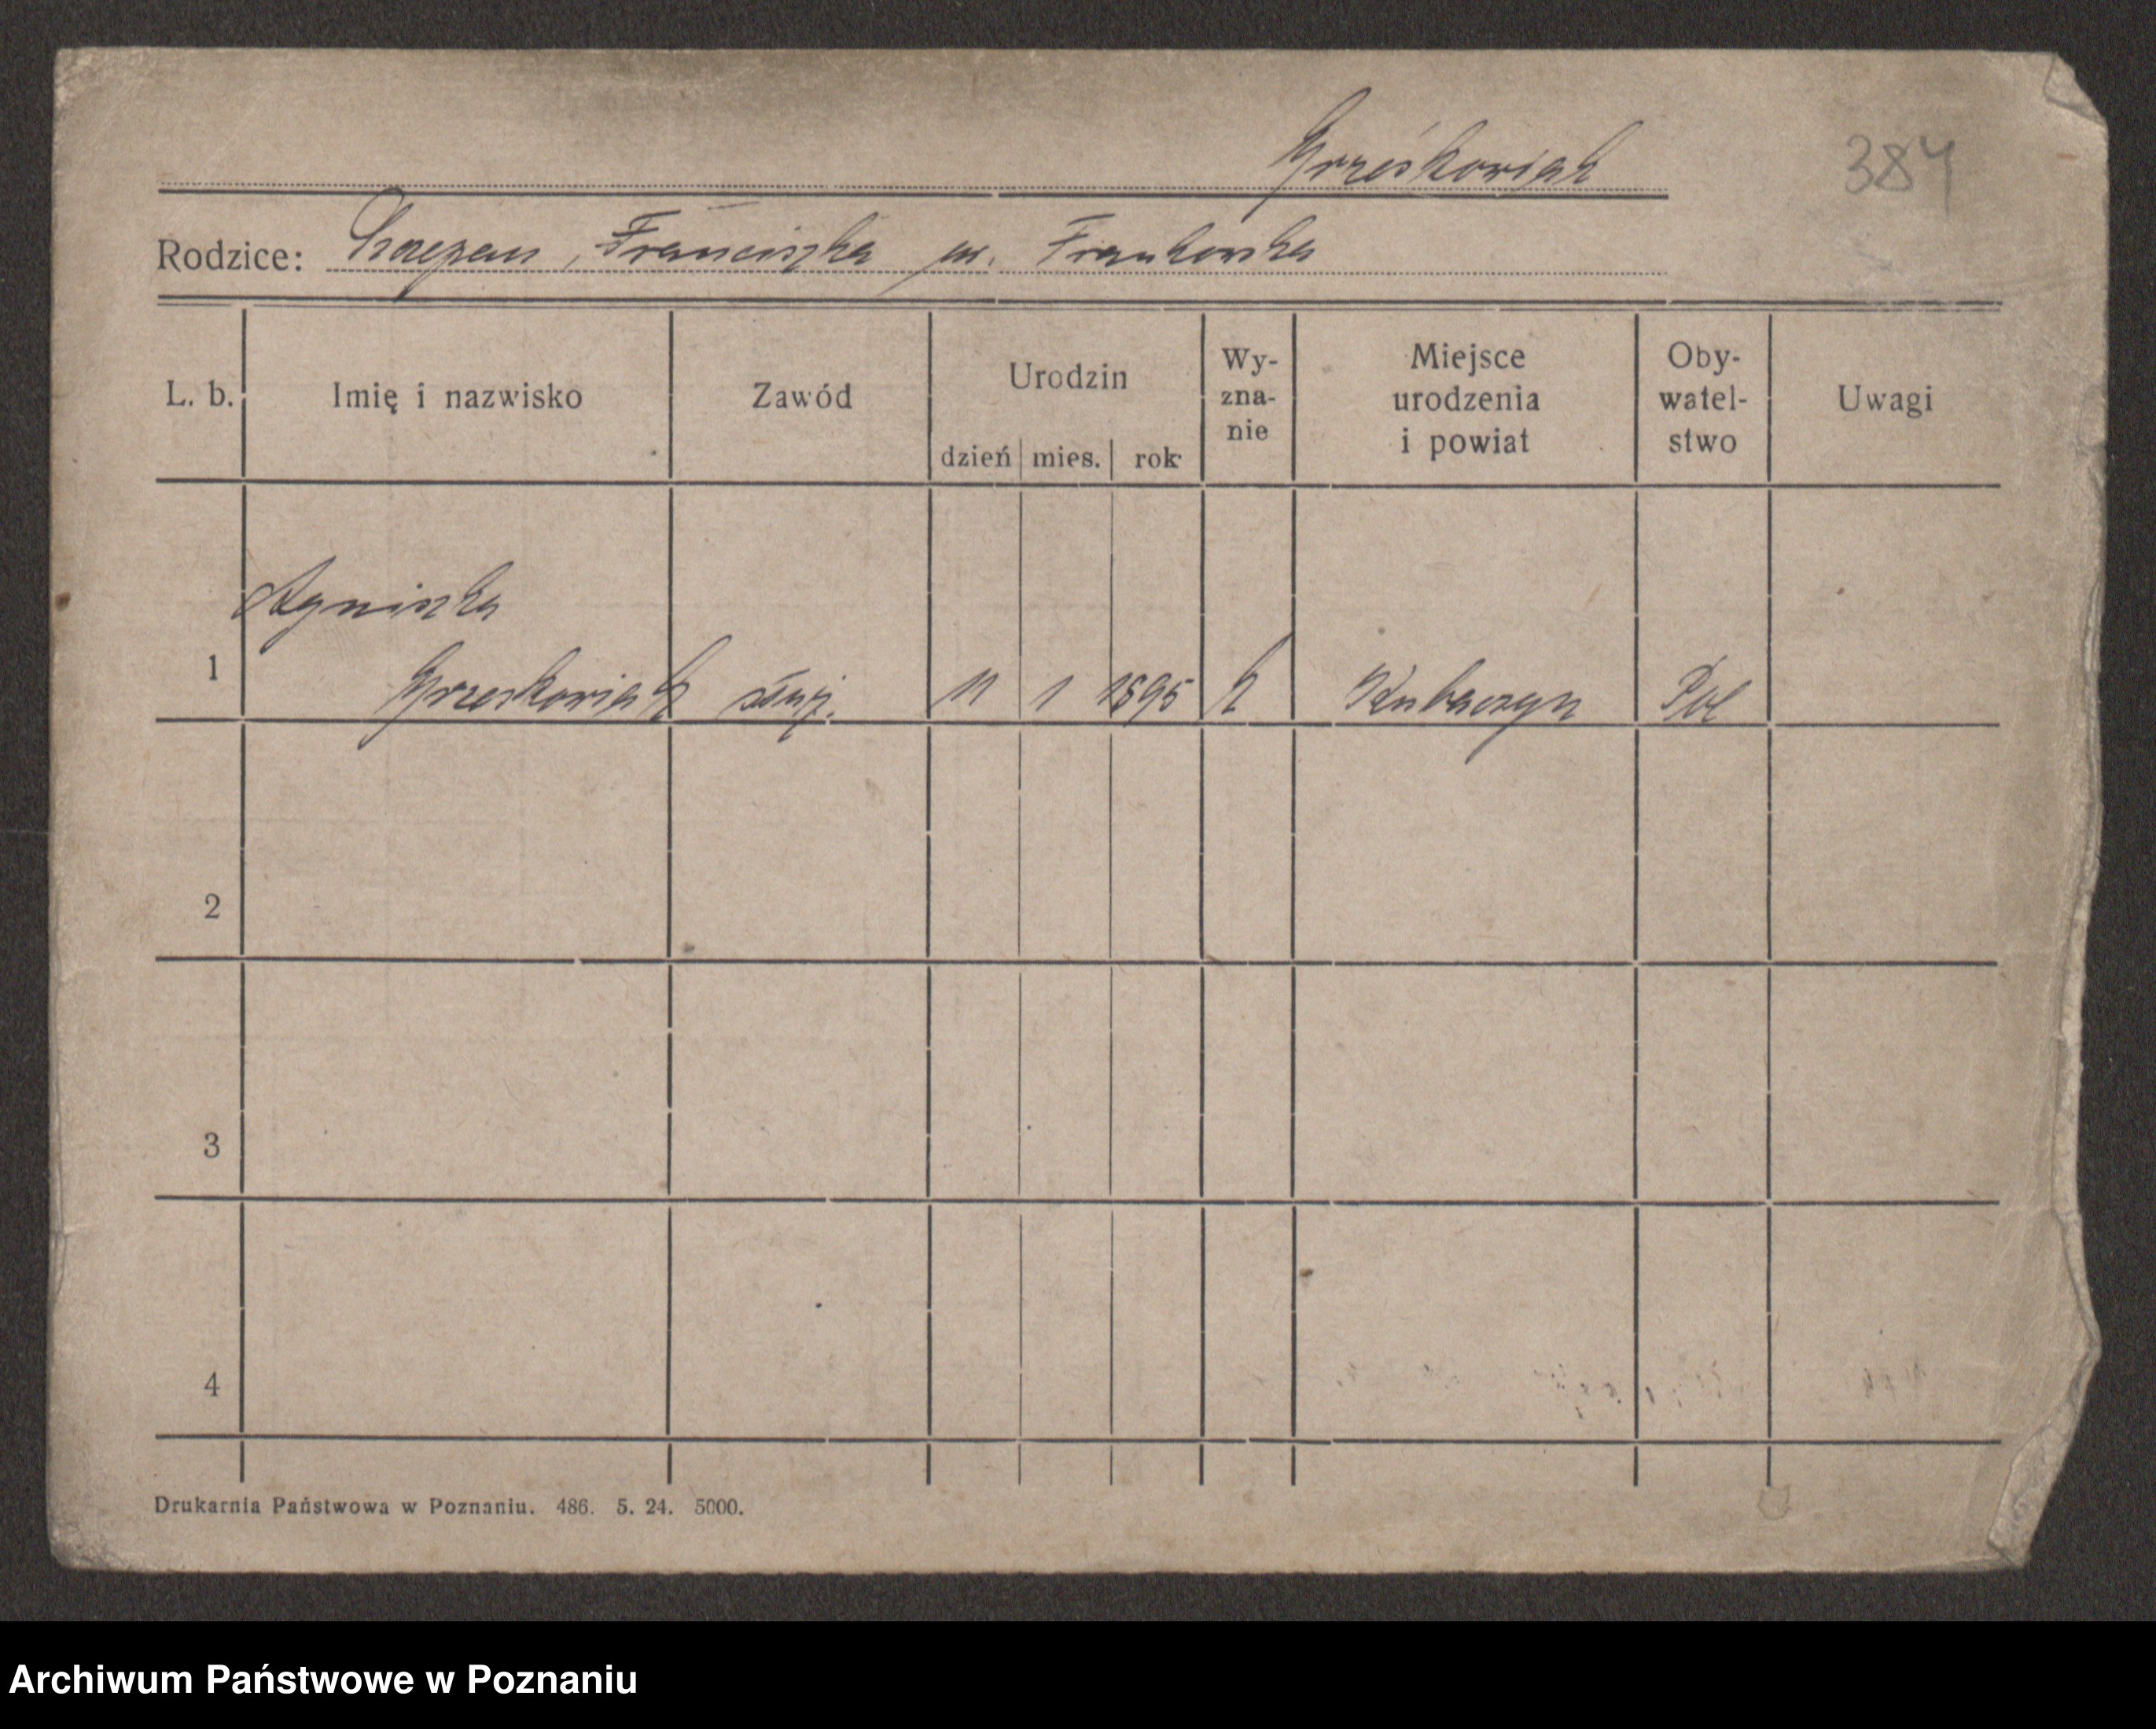 Grześkowiak
384
Rodzice: Szczepan, Franciszka ur. Frankowska
L. b. Imię i nazwisko Zawód Urodzin dzień mies. rok Wy-zna-nie Miejsce urodzenia i powiat Oby-watel-stwo Uwagi
Agniszka
1 Grzeskowiak służ. 11 1 1895 k Kubaczyn Pol
2
3
4
Drukarnia Państwowa w Poznaniu. 486. 5. 24. 5000.
Archiwum Państwowe w Poznaniu